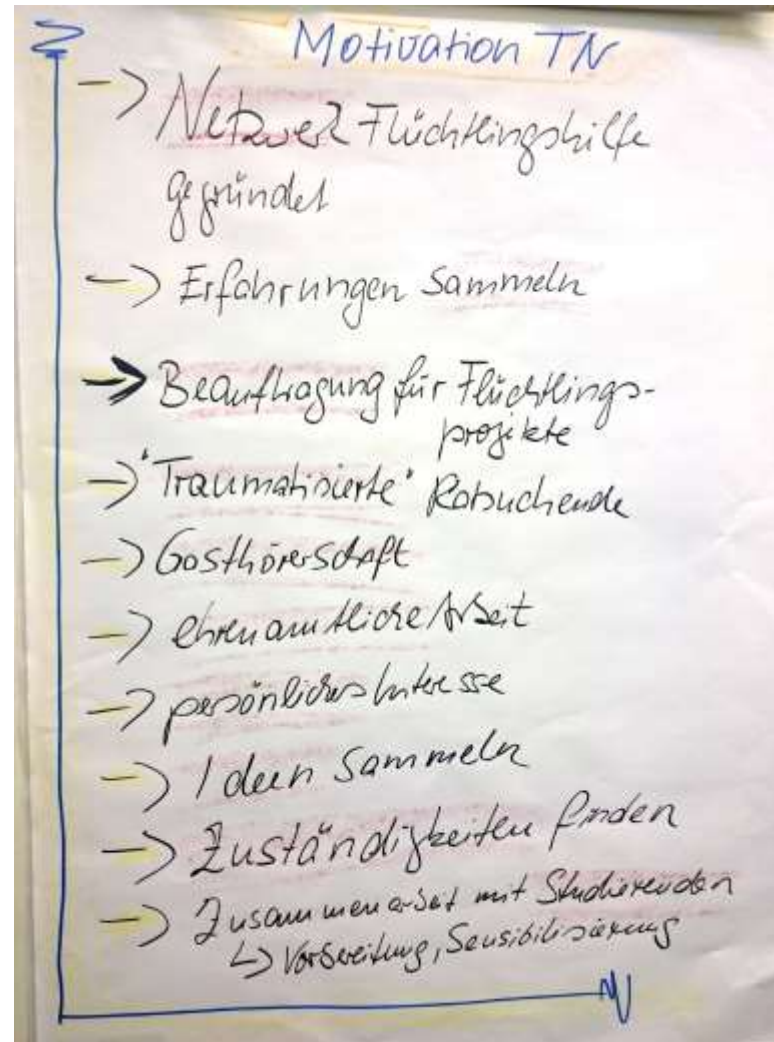 Motivation TN
-> Netzwerk Flüchtlingshilfe
gegründet
-> Erfahrungen sammeln
-> Beauftragung für Flüchtlings-
projekte
-> "Traumatisierte" Ratsuchende
-> Gasthörerschaft
-> ehrenamtliche Arbeit
-> persönliches Interesse
-> Ideen sammeln
-> Zuständigkeiten finden
-> Zusammenarbeit mit Studierenden
↳ Vorbereitung, Sensibilisierung